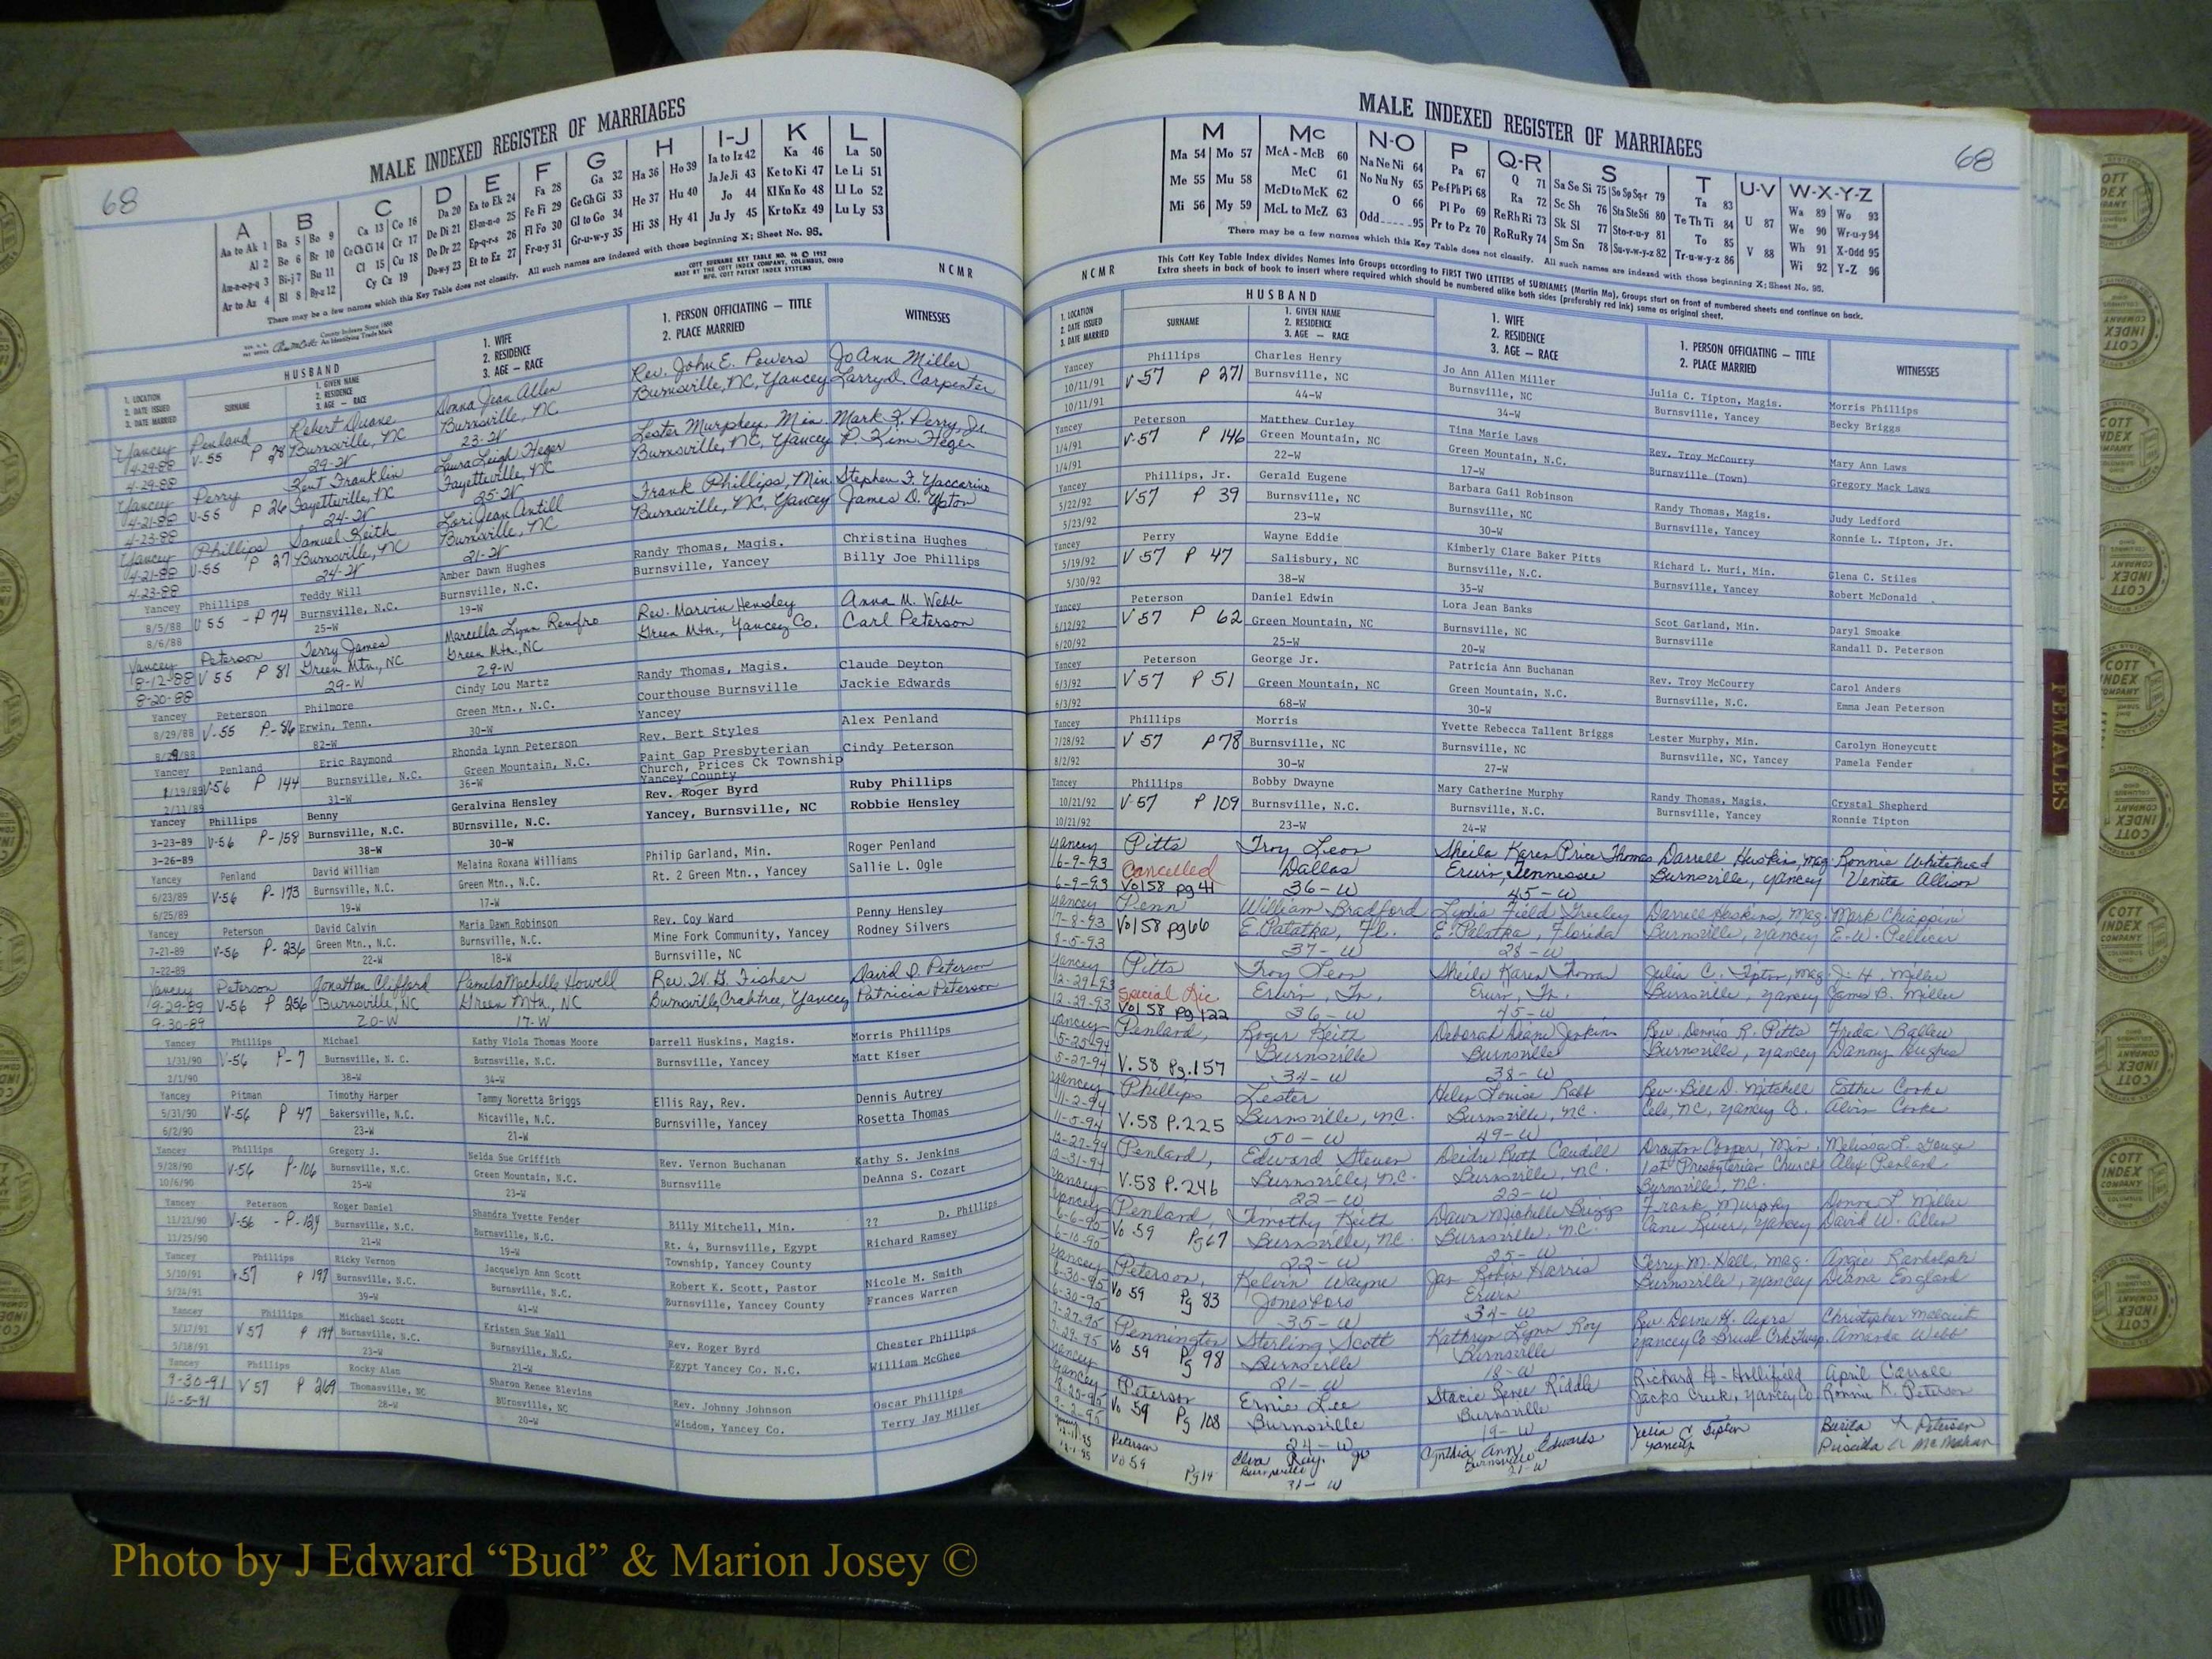 68
MALE INDEXED REGISTER OF MARRIAGES
A B C D E F G H I-J K L
Aa to Ak 1 Ba 5 Bo 9 Ca 13 Co 16 Da 20 Ea to Ek 24 Fa 28 Ga 32 Ha 36 Ho 39 Ia to Iz 42 Ka 46 La 50
Al 2 Be 6 Br 10 Ce Ch Ci 14 Cr 17 De Di 21 El-m-n-o 25 Fe Fi 29 Ge Gh Gi 33 He 37 Hu 40 Ja Je Ji 43 Ke to Ki 47 Le Li 51
Am-n-o-p-q 3 Bi-j 7 Bu 11 Cl 15 Cu 18 Do Dr 22 Ep-q-r-s 26 Fl Fo 30 Gl to Go 34 Hi 38 Hy 41 Jo 44 Kl Kn Ko 48 Ll Lo 52
Ar to Az 4 Bl 8 By-z 12 Cy Cz 19 Du-w-y 23 Et to Ez 27 Fr-u-y 31 Gr-u-w-y 35 Ju Jy 45 Kr to Kz 49 Lu Ly 53
There may be a few names which this Key Table does not classify. All such names are indexed with those beginning X; Sheet No. 95.
COTT SURNAME KEY TABLE NO. 96 © 1952
MADE BY THE COTT INDEX COMPANY, COLUMBUS, OHIO
MFG. COTT PATENT INDEX SYSTEMS
NCMR
County Indexes Since 1888
An Identifying Trade Mark
HUSBAND
1. LOCATION
2. DATE ISSUED
3. DATE MARRIED
SURNAME
1. GIVEN NAME
2. RESIDENCE
3. AGE — RACE
1. WIFE
2. RESIDENCE
3. AGE — RACE
1. PERSON OFFICIATING — TITLE
2. PLACE MARRIED
WITNESSES
Yancey Penland Robert Duane Donna Jean Allen Rev. John E. Powers JoAnn Miller
4-29-88 V-55 P 28 Burnsville, NC Burnsville, NC Burnsville, NC, Yancey Larry D. Carpenter
4-29-88 29-W 23-W
Yancey Perry Kent Franklin Laura Leigh Heger Lester Murphey, Min. Mark F. Perry, Jr.
4-21-88 V-55 P 26 Fayetteville, NC Fayetteville, NC Burnsville, NC, Yancey P. Kim Heger
4-23-88 24-W 25-W
Yancey Phillips Samuel Keith Lori Jean Antill Frank Phillips, Min. Stephen F. Yaccarino
4-21-88 V-55 P 27 Burnsville, NC Burnsville, NC Burnsville, NC, Yancey James D. Upton
4-23-88 24-W 21-W
Yancey Phillips Teddy Will Amber Dawn Hughes Randy Thomas, Magis. Christina Hughes
8/5/88 V 55 - P 74 Burnsville, N.C. Burnsville, N.C. Burnsville, Yancey Billy Joe Phillips
8/6/88 25-W 19-W
Yancey Peterson Terry James Marcella Lynn Renfro Rev. Marvin Hensley Anna M. Webb
8-12-88 V 55 P 81 Green Mtn., NC Green Mtn., NC Green Mtn., Yancey Co. Carl Peterson
8-20-88 29-W 29-W
Yancey Peterson Philmore Cindy Lou Martz Randy Thomas, Magis. Claude Deyton
8/29/88 V-55 P-86 Erwin, Tenn. Green Mtn., N.C. Courthouse Burnsville Jackie Edwards
8/29/88 82-W 30-W Yancey
Yancey Penland Eric Raymond Rhonda Lynn Peterson Rev. Bert Styles Alex Penland
1/19/89 V-56 P 144 Burnsville, N.C. Green Mountain, N.C. Paint Gap Presbyterian Cindy Peterson
2/11/89 31-W 36-W Church, Prices Ck Township
Yancey County
Yancey Phillips Benny Geralvina Hensley Rev. Roger Byrd Ruby Phillips
3-23-89 V-56 P-158 Burnsville, N.C. BUrnsville, N.C. Yancey, Burnsville, NC Robbie Hensley
3-26-89 38-W 30-W
Yancey Penland David William Melaina Roxana Williams Philip Garland, Min. Roger Penland
6/23/89 V-56 P-173 Burnsville, N.C. Green Mtn., N.C. Rt. 2 Green Mtn., Yancey Sallie L. Ogle
6/25/89 19-W 17-W
Yancey Peterson David Calvin Maria Dawn Robinson Rev. Coy Ward Penny Hensley
7-21-89 V-56 P-236 Green Mtn., N.C. Burnsville, N.C. Mine Fork Community, Yancey Rodney Silvers
7-22-89 22-W 18-W Burnsville, NC
Yancey Peterson Jonathan Clifford Pamela Machelle Howell Rev. W. G. Fisher David D. Peterson
9-29-89 V-56 P 256 Burnsville, NC Green Mtn, NC Burnsville, Crabtree, Yancey Patricia Peterson
9-30-89 20-W 17-W
Yancey Phillips Michael Kathy Viola Thomas Moore Darrell Huskins, Magis. Morris Phillips
1/31/90 V-56 P-7 Burnsville, N. C. Burnsville, N.C. Burnsville, Yancey Matt Kiser
2/1/90 38-W 34-W
Yancey Pitman Timothy Harper Tammy Noretta Briggs Ellis Ray, Rev. Dennis Autrey
5/31/90 V-56 P 47 Bakersville, N.C. Micaville, N.C. Burnsville, Yancey Rosetta Thomas
6/2/90 23-W 21-W
Yancey Phillips Gregory J. Nelda Sue Griffith Rev. Vernon Buchanan Kathy S. Jenkins
9/28/90 V-56 P-106 Burnsville, N.C. Green Mountain, N.C. Burnsville DeAnna S. Cozart
10/6/90 25-W 23-W
Yancey Peterson Roger Daniel Shandra Yvette Fender Billy Mitchell, Min. ?? D. Phillips
11/21/90 V-56 - P-129 Burnsville, N.C. Burnsville, N.C. Rt. 4, Burnsville, Egypt Richard Ramsey
11/25/90 21-W 19-W Township, Yancey County
Yancey Phillips Ricky Vernon Jacquelyn Ann Scott Robert K. Scott, Pastor Nicole M. Smith
5/10/91 V57 P 197 Burnsville, N.C. Burnsville, N.C. Burnsville, Yancey County Frances Warren
5/24/91 39-W 41-W
Yancey Phillips Michael Scott Kristen Sue Wall Rev. Roger Byrd Chester Phillips
5/17/91 V57 P 199 Burnsville, N.C. Burnsville, N.C. Egypt Yancey Co. N.C. William McGhee
5/18/91 23-W 21-W
Yancey Phillips Rocky Alan Sharon Renee Blevins Rev. Johnny Johnson Oscar Phillips
9-30-91 V57 P 269 Thomasville, NC BUrnsville, NC Windom, Yancey Co. Terry Jay Miller
10-5-91 28-W 20-W
MALE INDEXED REGISTER OF MARRIAGES
68
M Mc N-O P Q-R S T U-V W-X-Y-Z
Ma 54 Mo 57 McA - McB 60 Na Ne Ni 64 Pa 67 Q 71 Sa Se Si 75 So Sp Sq-r 79 Ta 83 Wa 89 Wo 93
Me 55 Mu 58 McC 61 No Nu Ny 65 Pe-f Ph Pi 68 Ra 72 Sc Sh 76 Sta Ste Sti 80 Te Th Ti 84 U 87 We 90 Wr-u-y 94
Mi 56 My 59 McD to McK 62 O 66 Pl Po 69 Re Rh Ri 73 Sk Sl 77 Sto-r-u-y 81 To 85 V 88 Wh 91 X-Odd 95
McL to McZ 63 Odd 95 Pr to Pz 70 Ro Ru Ry 74 Sm Sn 78 Su-v-w-y-z 82 Tr-u-w-y-z 86 Wi 92 Y-Z 96
There may be a few names which this Key Table does not classify. All such names are indexed with those beginning X; Sheet No. 95.
NCMR
This Cott Key Table Index divides Names into Groups according to FIRST TWO LETTERS of SURNAMES (Martin Ma), Groups start on front of numbered sheets and continue on back.
Extra sheets in back of book to insert where required which should be numbered alike both sides (preferably red ink) same as original sheet.
HUSBAND
1. LOCATION
2. DATE ISSUED
3. DATE MARRIED
SURNAME
1. GIVEN NAME
2. RESIDENCE
3. AGE — RACE
1. WIFE
2. RESIDENCE
3. AGE — RACE
1. PERSON OFFICIATING — TITLE
2. PLACE MARRIED
WITNESSES
Yancey Phillips Charles Henry Jo Ann Allen Miller Julia C. Tipton, Magis. Morris Phillips
10/11/91 V 57 P 271 Burnsville, NC Burnsville, NC Burnsville, Yancey Becky Briggs
10/11/91 44-W 34-W
Yancey Peterson Matthew Curley Tina Marie Laws Rev. Troy McCourry Mary Ann Laws
1/4/91 V-57 P 146 Green Mountain, NC Green Mountain, N.C. Burnsville (Town) Gregory Mack Laws
1/4/91 22-W 17-W
Yancey Phillips, Jr. Gerald Eugene Barbara Gail Robinson Randy Thomas, Magis. Judy Ledford
5/22/92 V57 P 39 Burnsville, NC Burnsville, NC Burnsville, Yancey Ronnie L. Tipton, Jr.
5/23/92 23-W 30-W
Yancey Perry Wayne Eddie Kimberly Clare Baker Pitts Richard L. Muri, Min. Glena C. Stiles
5/19/92 V 57 P 47 Salisbury, NC Burnsville, N.C. Burnsville, Yancey Robert McDonald
5/30/92 38-W 35-W
Yancey Peterson Daniel Edwin Lora Jean Banks Scot Garland, Min. Daryl Smoake
6/12/92 V 57 P 62 Green Mountain, NC Burnsville, NC Burnsville Randall D. Peterson
6/20/92 25-W 20-W
Yancey Peterson George Jr. Patricia Ann Buchanan Rev. Troy McCourry Carol Anders
6/3/92 V 57 P 51 Green Mountain, NC Green Mountain, N.C. Burnsville, N.C. Emma Jean Peterson
6/3/92 68-W 30-W
Yancey Phillips Morris Yvette Rebecca Tallent Briggs Lester Murphy, Min. Carolyn Honeycutt
7/28/92 V 57 P78 Burnsville, NC Burnsville, NC Burnsville, NC, Yancey Pamela Fender
8/2/92 30-W 27-W
Yancey Phillips Bobby Dwayne Mary Catherine Murphy Randy Thomas, Magis. Crystal Shepherd
10/21/92 V-57 P 109 Burnsville, N.C. Burnsville, N.C. Burnsville, Yancey Ronnie Tipton
10/21/92 23-W 24-W
Yancey Pitts Troy Leon Sheila Karen Price Thomas Darrell Huskins, Mag. Ronnie Whitehead
6-9-93 Cancelled Dallas Erwin, Tennessee Burnsville, Yancey Venita Allison
6-9-93 Vol 58 pg 41 36-W 45-W
Yancey Penn William Bradford Lydia Field Greeley Darrell Huskins, Mag. Mark Chiappini
7-8-93 Vol 58 pg 66 E. Palatka, Fl. E. Palatka, Florida Burnsville, Yancey E. W. Pellicer
8-5-93 37-W 28-W
Yancey Pitts Troy Leon Sheila Karen Thomas Julia C. Tipton, Mag. J. H. Miller
12-29-93 Special Lic Erwin, Tn. Erwin, Tn. Burnsville, Yancey James B. Miller
12-29-93 Vol 58 pg 122 36-W 45-W
Yancey Penland, Roger Keith Deborah Diane Jenkins Rev. Dennis R. Pitts Freda Ballew
5-25-94 Burnsville Burnsville Burnsville, Yancey Danny Hughes
5-27-94 V. 58 Pg. 157 34-W 38-W
Yancey Phillips Lester Helen Louise Rabb Rev. Bill D. Mitchell Esther Cooke
11-2-94 Burnsville, N.C. Burnsville, N.C. Celo, NC, Yancey Co. Alvin Cooke
11-5-94 V. 58 P. 225 50-W 49-W
12-27-94 Penland, Edward Steven Deidre Ruth Caudill Drayton Cooper, Min. Melissa L. Gouge
12-31-94 Burnsville, N.C. Burnsville, N.C. 1st Presbyterian Church Alex Penland
Yancey V. 58 P. 246 22-W 22-W Burnsville, NC.
Yancey Penland, Timothy Keith Dawn Michelle Briggs Frank Murphy Donna L. Miller
6-6-95 Vo 59 Pg 67 Burnsville, NC. Burnsville, N.C. Cane River, Yancey David W. Allen
6-10-95 22-W 25-W
Yancey Peterson, Kelvin Wayne Jan Robin Harris Terry M. Hall, Mag. Angie Randolph
6-30-95 Vo 59 Pg 83 Jonesboro Erwin Burnsville, Yancey Diana England
6-30-95 35-W 34-W
7-27-95 Pennington Sterling Scott Kathryn Lynn Roy Rev. Dorne H. Ayers Christopher McCourt
7-29-95 Vo 59 Pg 98 Burnsville Burnsville Yancey Co-Brush Crk Twsp. Amanda Webb
Yancey 21-W 18-W
Yancey Peterson Ernie Lee Stacie Renee Riddle Richard H. Hollifield April Carroll
8-25-95 Vo 59 Pg 108 Burnsville Burnsville Jacks Creek, Yancey Co Ronnie K. Peterson
9-2-95 24-W 19-W
Yancey Peterson Elva Ray, Jr Cynthia Ann Edwards Julia C Tipton Burita Peterson
12-1-95 Vo 59 Pg 14 Burnsville Burnsville Yancey Priscilla McMahan
12-1-95 31-W 21-W
FEMALES
COTT INDEX COMPANY
Photo by J Edward “Bud” & Marion Josey ©